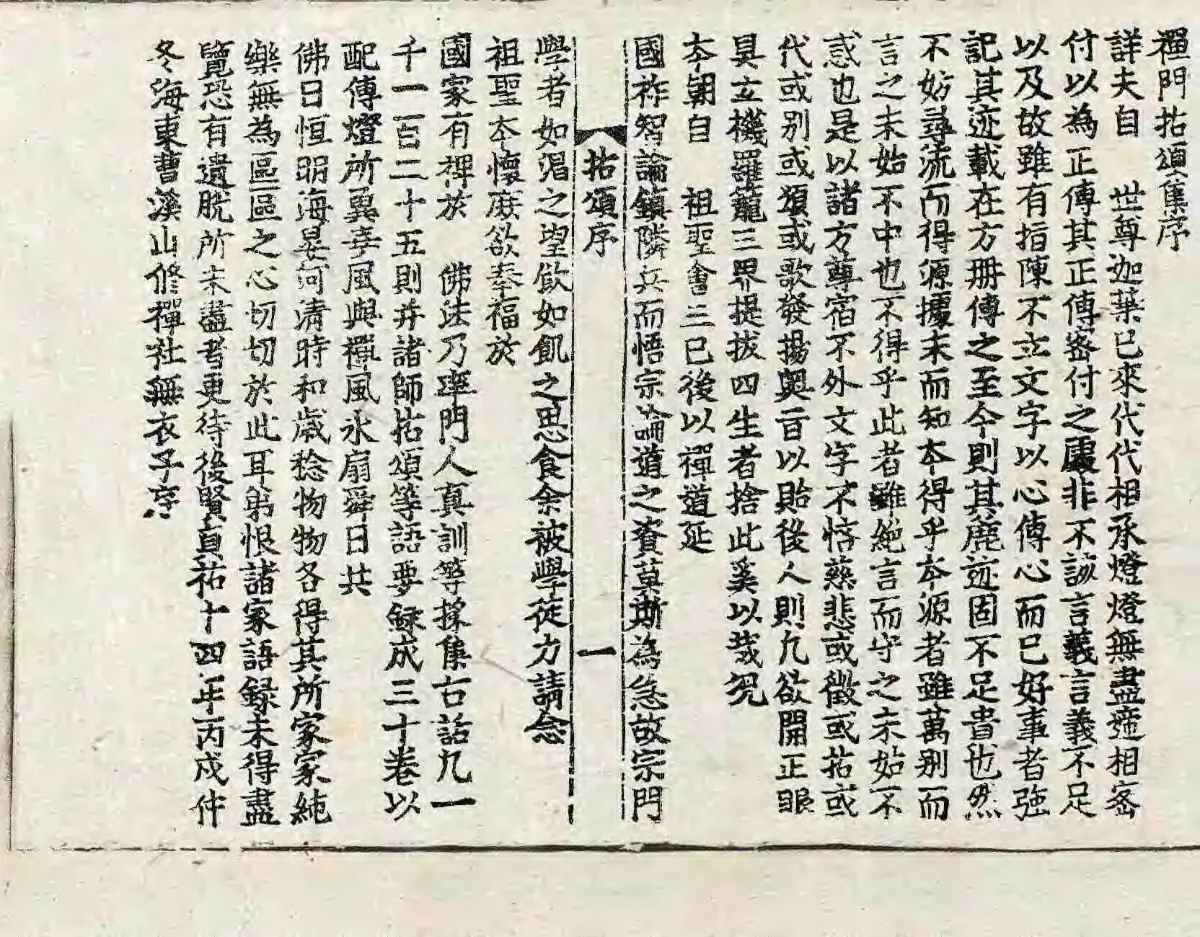 禪門拈頌集序
詳夫自　世尊迦葉已來代代相承燈燈無盡遞相密
付以為正傳其正傳密付之處非不該言義言義不足
以及故雖有指陳不立文字以心傳心而已好事者強
記其迹載在方冊傳之至今則其麁迹固不足貴也然
不妨尋流而得源據末而知本得乎本源者雖萬別而
言之未始不中也不得乎此者雖絕言而守之未始不
惑也是以諸方尊宿不外文字不悋慈悲或徵或拈或
代或別或頌或歌發揚奧旨以貽後人則凡欲開正眼
具玄機羅籠三界提拔四生者捨此奚以哉況
本朝自　祖聖會三已後以禪道延
國祚智論鎮隣兵而悟宗論道之資莫斯為急故宗門
拈頌序　一
學者如渴之望飲如飢之思食余被學徒力請念
祖聖本懷庶欲奉福於
國家有裨於　佛法乃率門人真訓等採集古話凡一
千一百二十五則并諸師拈頌等語要錄成三十卷以
配傳燈所冀堯風與禪風永扇舜日共
佛日恒明海晏河清時和歲稔物物各得其所家家純
樂無為區區之心切切於此耳第恨諸家語錄未得盡
覽恐有遺脫所未盡者更待後賢貞祐十四年丙戌仲
冬海東曹溪山修禪社無衣子序